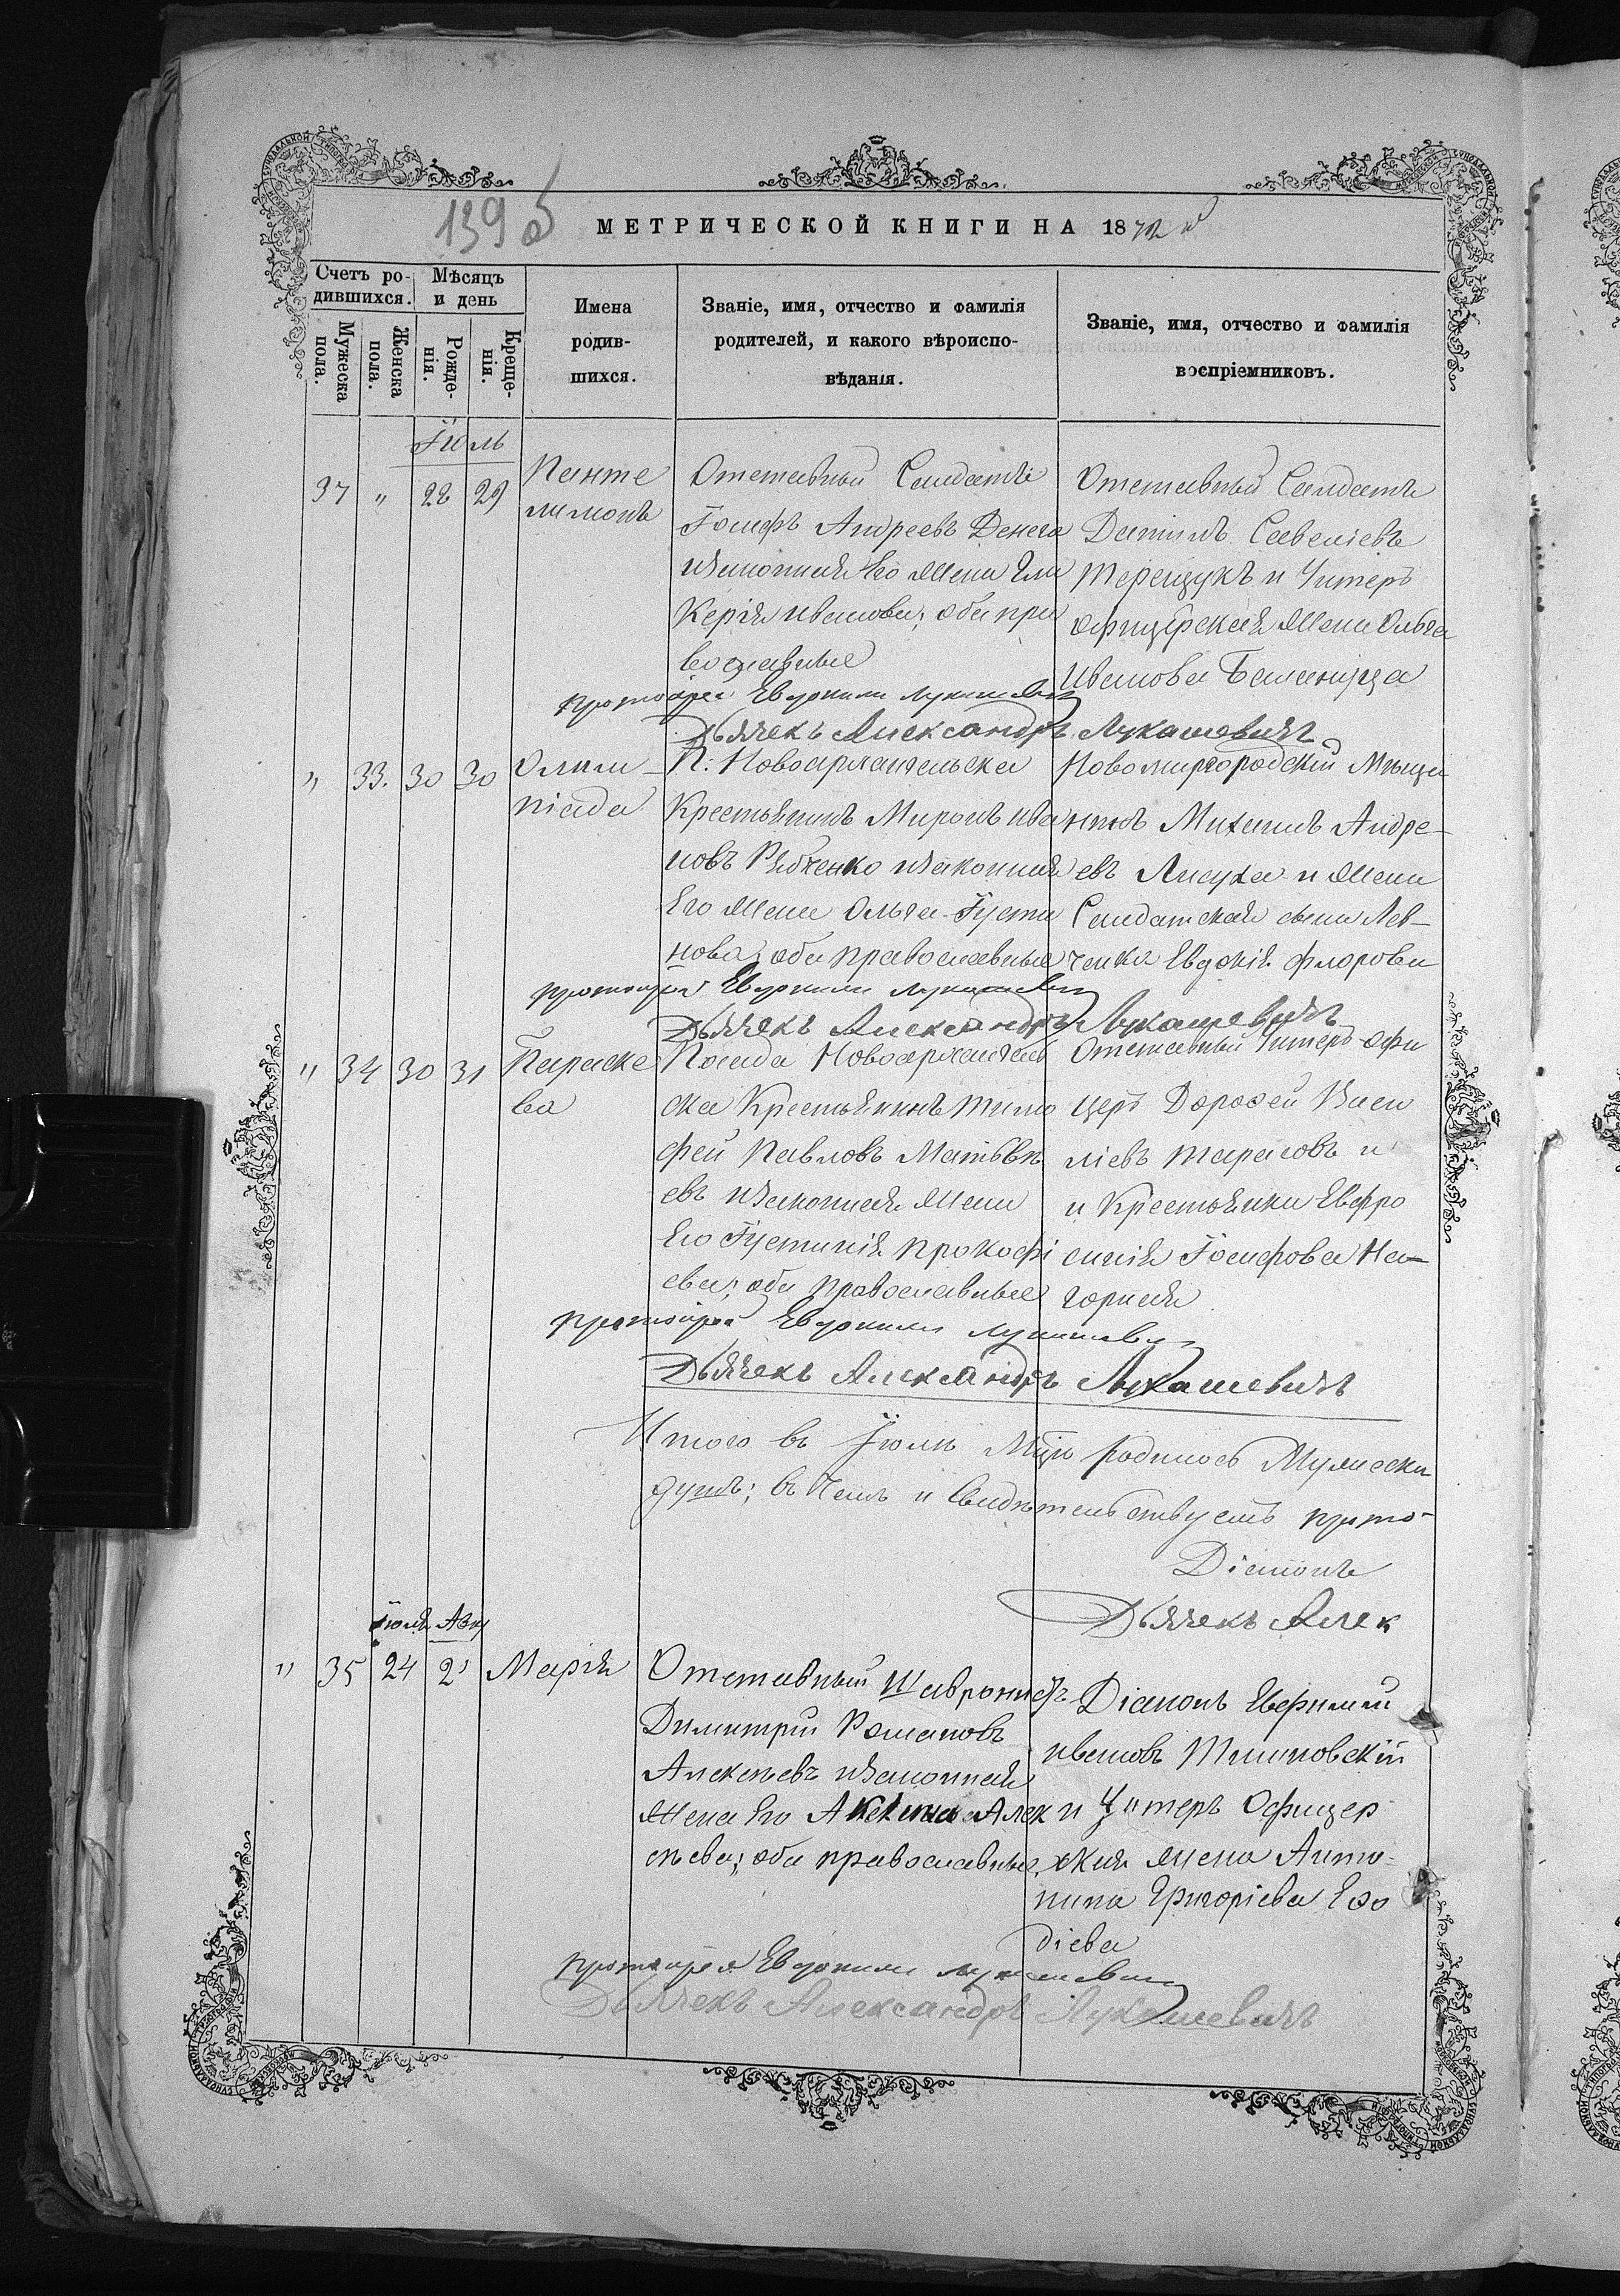 139 об
МЕТРИЧЕСКОЙ КНИГИ НА 1872 й
Счетъ ро-
дившихся.
Мѣсяцъ
и день
Мужеска
пола.
Женска
пола.
Рожде-
нія.
Креще-
нія.
Имена
родив-
шихся.
Званіе, имя, отчество и фамилія
родителей, и какого вѣроиспо-
вѣданія.
Званіе, имя, отчество и фамилія
воспріемниковъ.
Іюль
37 " 28 29
Панте
лимонъ
Отставный Солдатъ
Іосифъ Андреевъ Денега
изаконная Его жена Гли
керія иванова; оба пра
вославные
Отставный Солдатъ
Савеліевъ
Терещукъ и Унтеръ
офицерская жена Ольга
Иванова
протоіерей Евдокимъ Лукашевичъ
Дьячекъ Александръ Лукашевичъ
" 33. 30 30
Олим
піада
П. Новоархангельска
Крестьянинъ Миронъ Ива
новъ Рябченко изаконная
Его жена Ольга Густи
нова; оба православные
Новомиргородскій Мѣща
нинъ Михаилъ Андре-
евъ и жена
Солдатская сына Лев-
ченка Евдокія Флорова
протоіерей Евдокимъ Лукашевичъ
Дьячекъ Александръ Лукашевичъ
" 34 30 31
Параске
ва
Посада Новоархангель
ска Крестьянинъ Тимо
фей Павловъ Матвѣ
евъ изаконная жена
Его Густинія Прокофі
ева; оба православные
Отставный Унтеръ офи
церъ Дорофей Васи
ліевъ Тарасовъ и
и Крестьянка Евфро
синія Іосифова На-
горная
протоіерей Евдокимъ Лукашевичъ
Дьячекъ Александръ Лукашевичъ
Итого въ Іюлѣ Мцѣ родилось Мужеска
душъ; въ Чемъ и Свидѣтельствуетъ прото-
Діаконъ
Дьячекъ Алек
Іюля Авгу
" 35 24 2
Марія
Отставный
Димитрій Романовъ
Алексѣевъ изаконная
жена Его Алек
сѣева; оба православные
Діаконъ Евфимій
ивановъ
и Унтеръ Офицер
ская жена Анто-
нина Григоріева
діева
протоіерей Евдокимъ Лукашевичъ
Дьячекъ Александръ Лукашевичъ